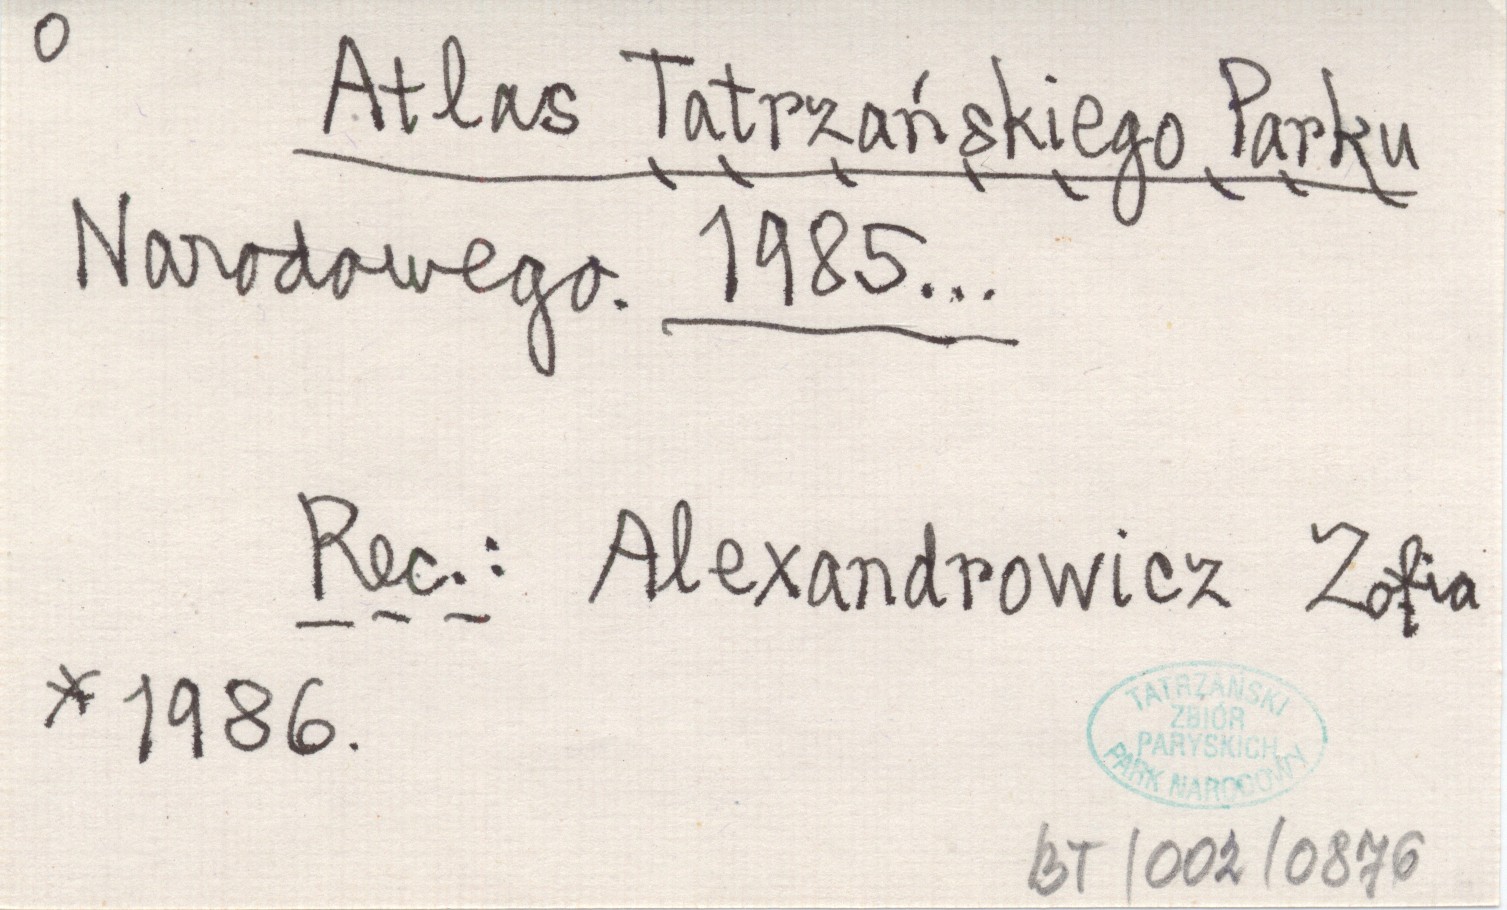 O
Atlas Tatrzańskiego Parku
Narodowego. 1985...
Rec.: Alexandrowicz Zofia
* 1986.
TATRZAŃSKI
ZBIÓR
PARYSKICH
PARK NARODOWY
BT/002/0876